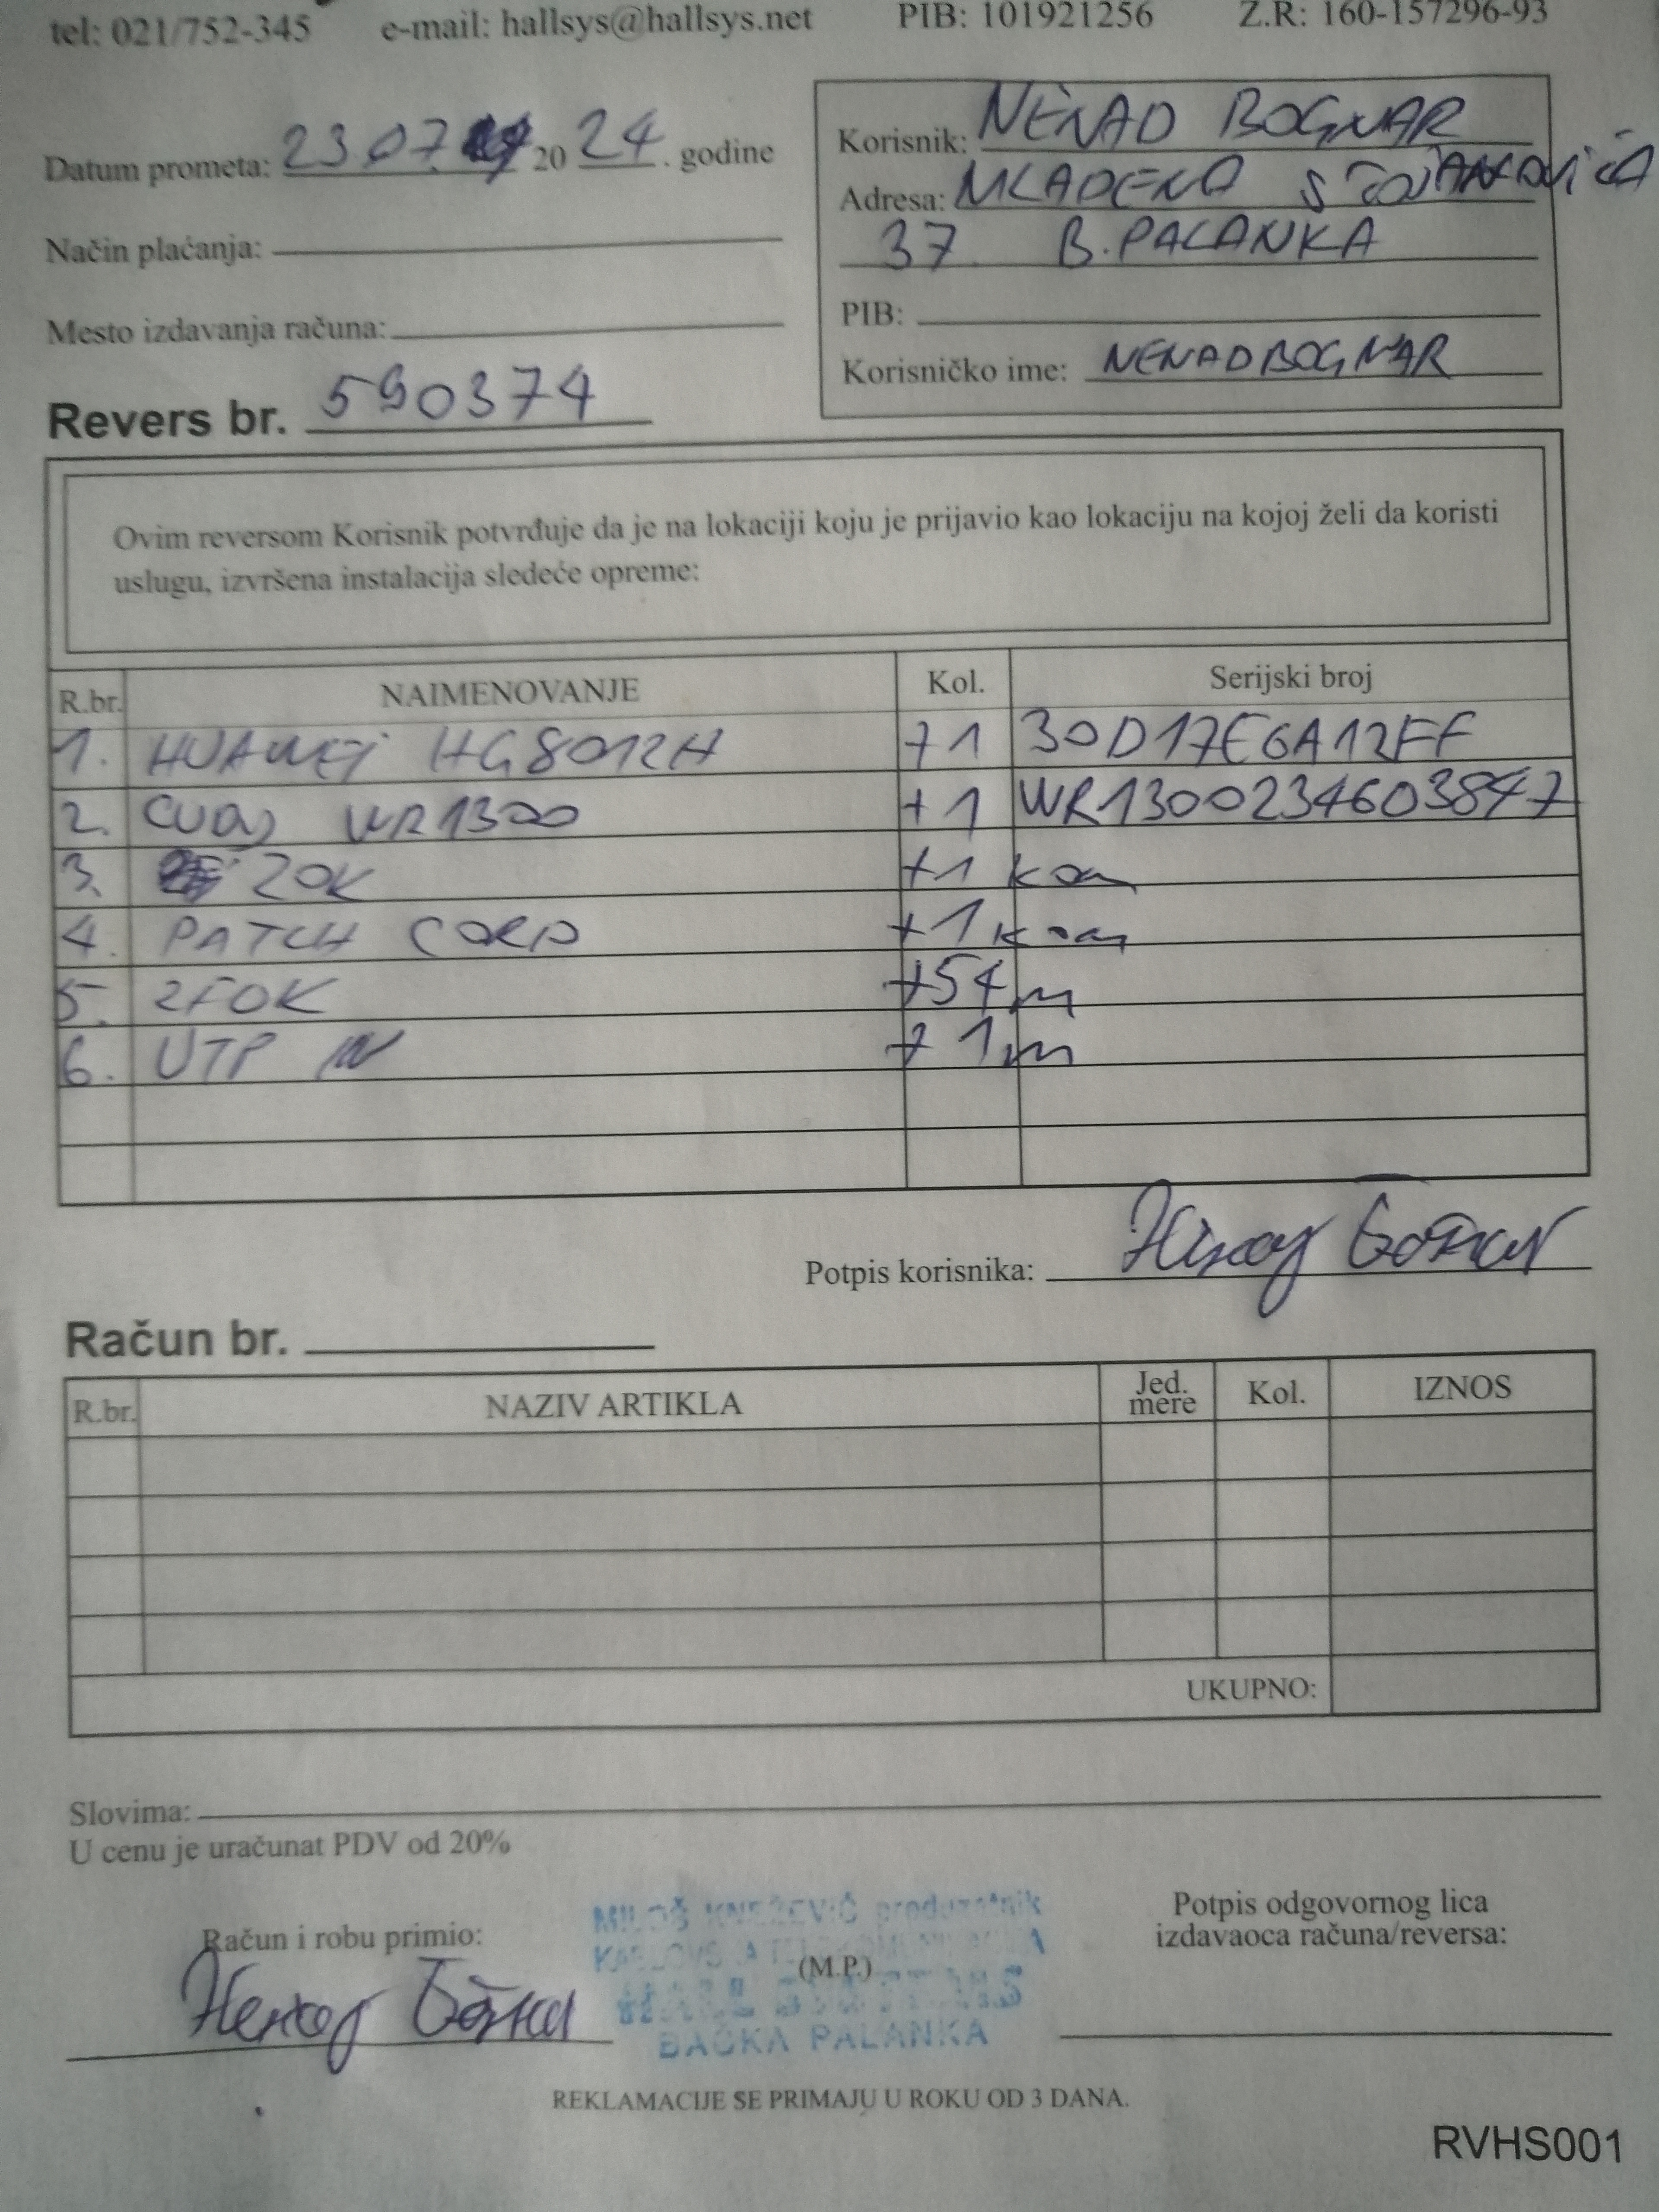 tel: 021/752-345 e-mail: hallsys@hallsys.net PIB: 101921256 Z.R: 160-157296-93
Datum prometa: 23.07. 2024. godine
Način plaćanja:
Mesto izdavanja računa:
Revers br. 590374
Korisnik: NENAD BOGNAR
Adresa: MLADENA STOJANOVIĆA
37 B. PALANKA
PIB:
Korisničko ime: NENADBOGNAR
Ovim reversom Korisnik potvrđuje da je na lokaciji koju je prijavio kao lokaciju na kojoj želi da koristi
uslugu, izvršena instalacija sledeće opreme:
R.br. NAIMENOVANJE Kol. Serijski broj
1. HUAWEI HG8012H +1 30D17E6A12FF
2. CUDY WR1300 +1 WR1300234603847
3. ZOK +1 kom
4. PATCH CORD +1 kom
5. 2FOK +54 m
6. UTP +1 m
Potpis korisnika:
Račun br.
R.br. NAZIV ARTIKLA Jed. mere Kol. IZNOS
UKUPNO:
Slovima:
U cenu je uračunat PDV od 20%
Račun i robu primio:
MILOŠ KNEŽEVIĆ preduzetnik
(M.P.)
BAČKA PALANKA
Potpis odgovornog lica
izdavaoca računa/reversa:
REKLAMACIJE SE PRIMAJU U ROKU OD 3 DANA.
RVHS001